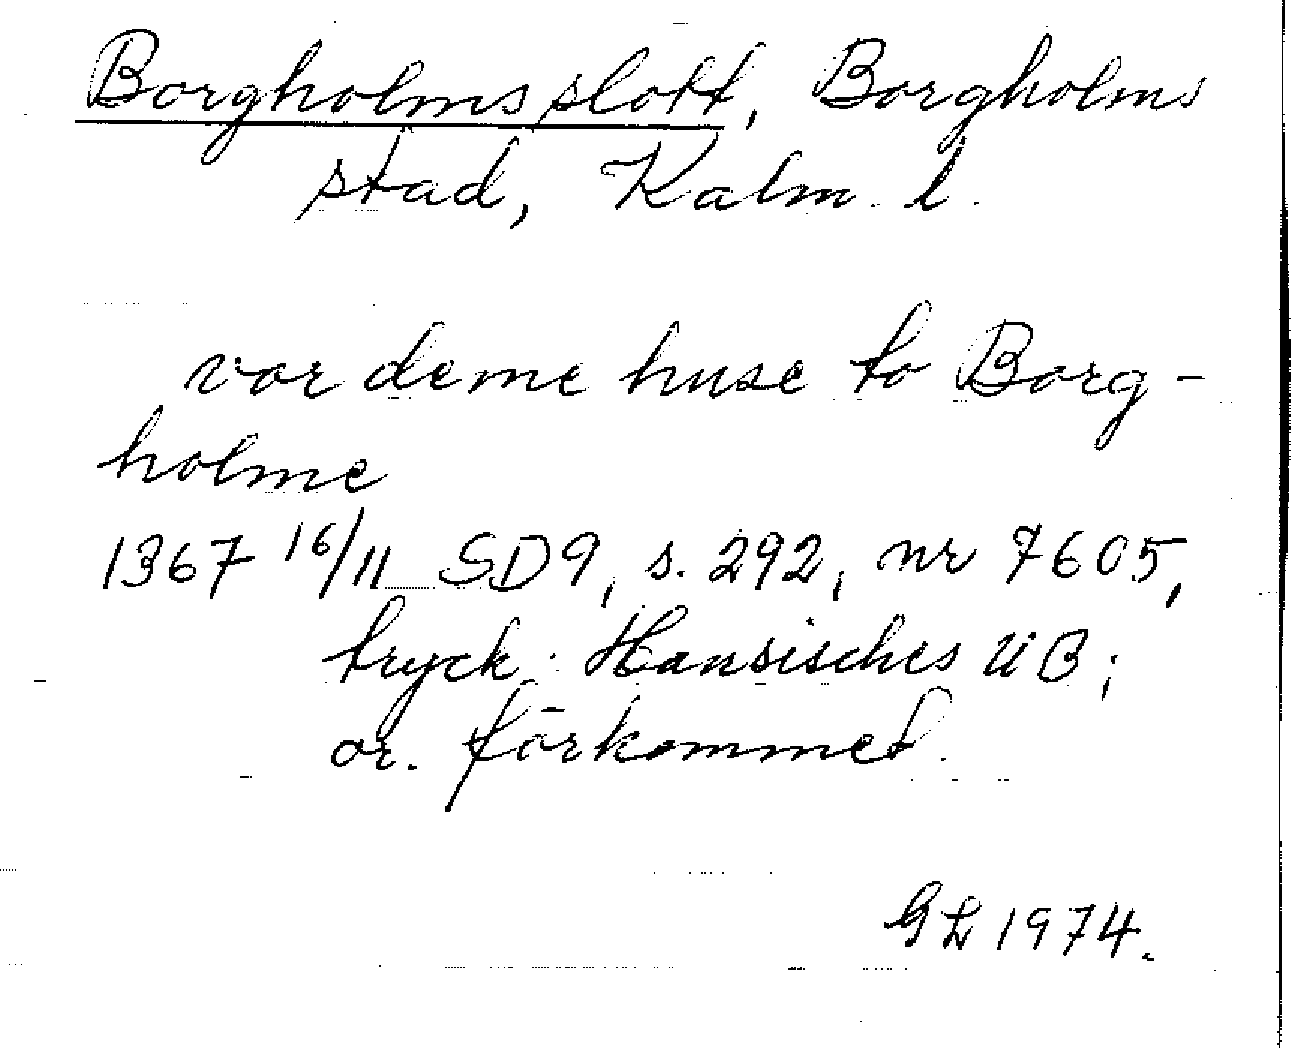 Borgholms slott, Borgholms
stad, Kalm. l.
vor deme huse to Borg-
holme
1367 16/11 SD9, s. 292, nr 7605,
tryck: Hansisches UB;
or. förkommet.
GL 1974.